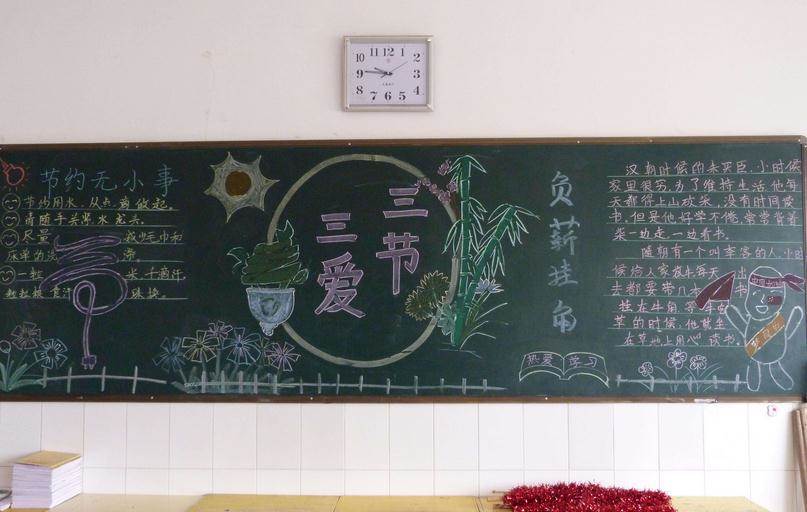 11 12 1
10 2
9 3
8 4
7 6 5
节约无小事
节约用水,从点滴做起。
请随手关紧水龙头。
尽量 减少毛巾和
床单的洗 涤
一粒 米千滴汗,
粒粒粮食汗 珠换。
三节
三爱
负薪挂角
汉朝时候的朱买臣,小时候
家里很穷,为了维持生活他每
天都得上山砍柴,没有时间读
书,但是他好学不倦,常常背着
柴一边走一边看书。
隋朝有一个叫李密的人,小时
候给人家放牛每天
去都要带几本 书
挂在牛角 等牛
草的时候,他就坐
在草地上用心读书。
热爱 学习